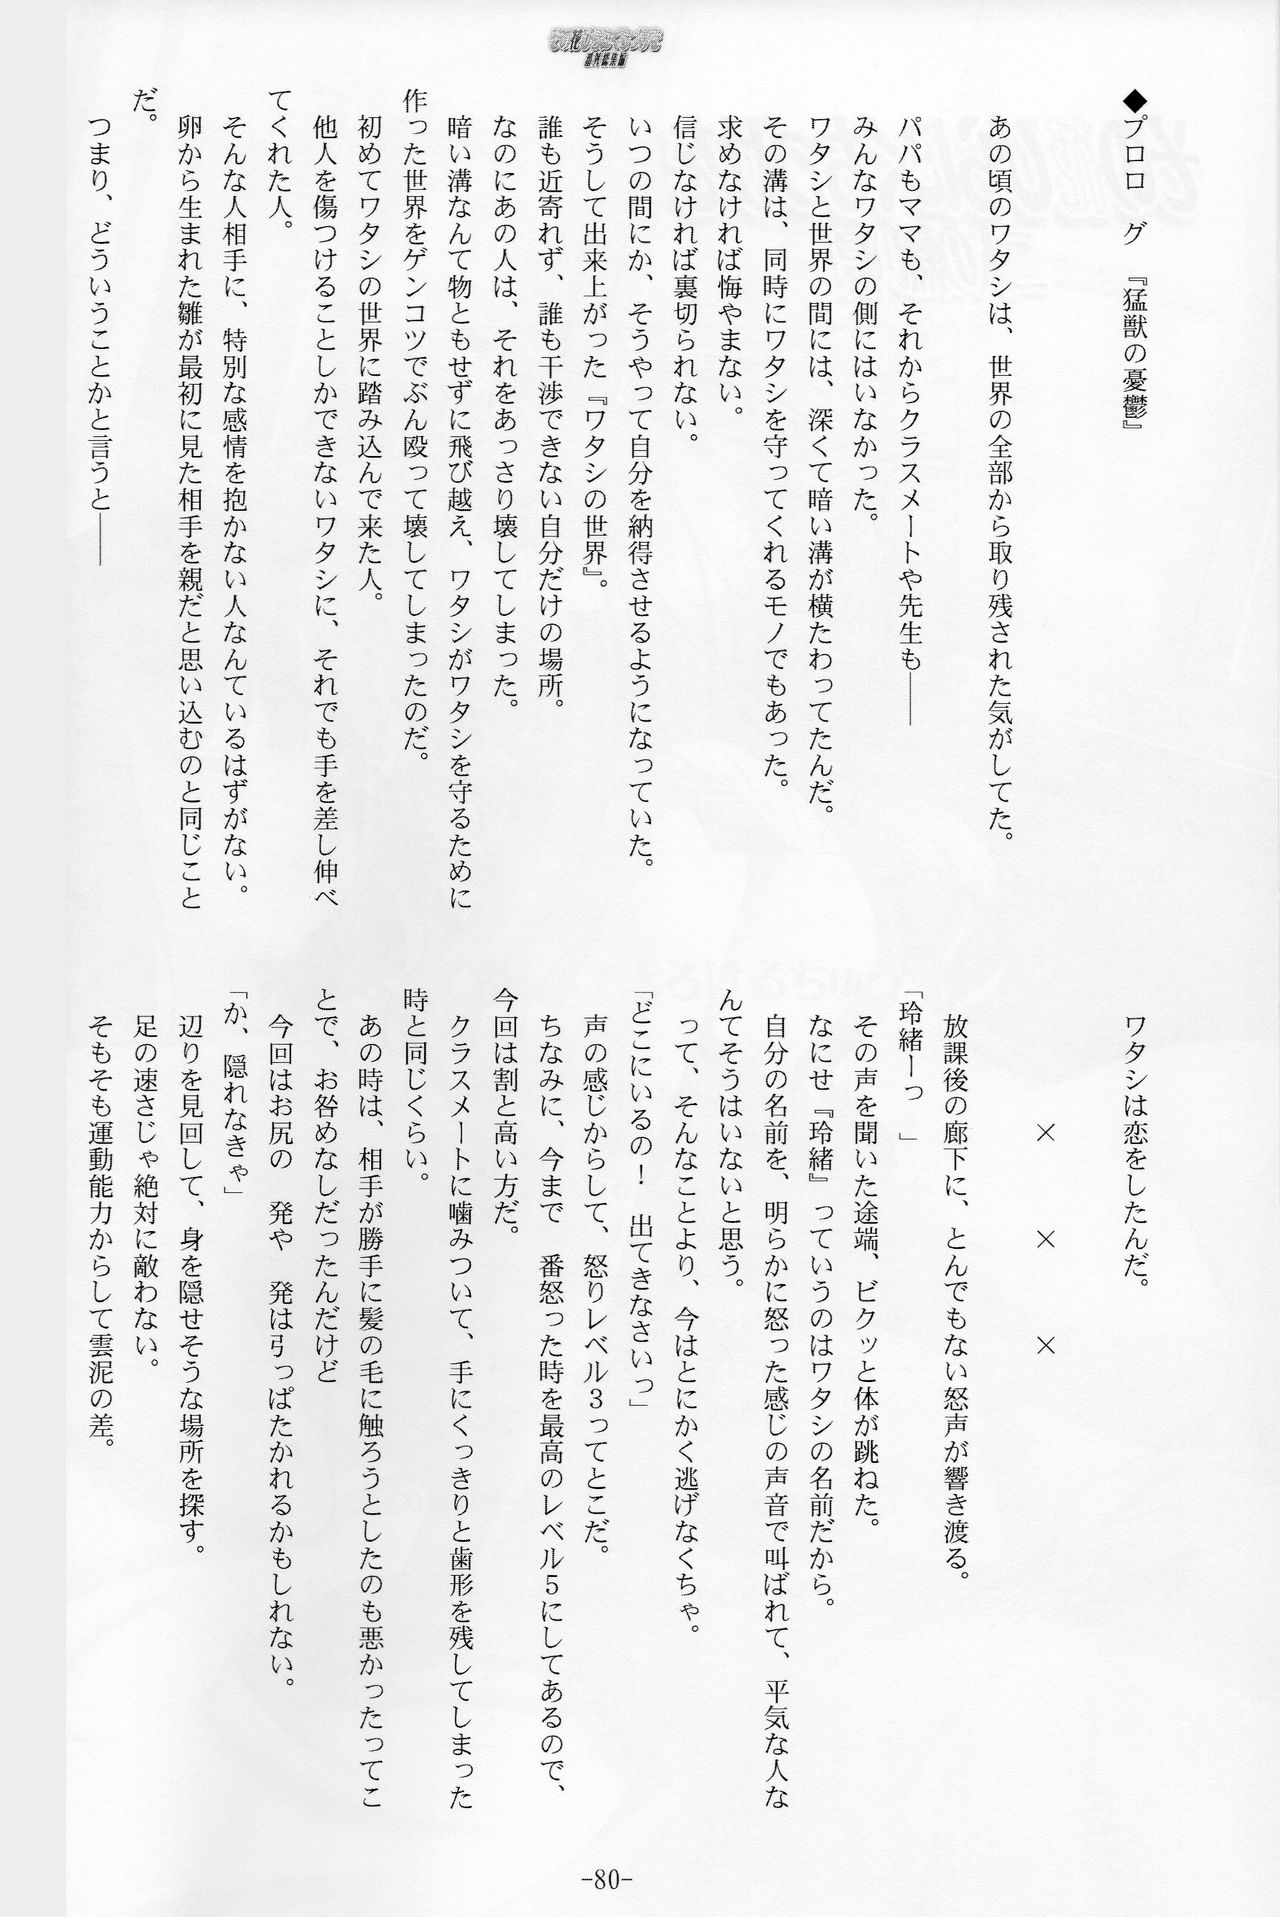 番外総集編
◆プロロ　グ　『猛獣の憂鬱』
あの頃のワタシは、世界の全部から取り残された気がしてた。
パパもママも、それからクラスメートや先生も――
みんなワタシの側にはいなかった。
ワタシと世界の間には、深くて暗い溝が横たわってたんだ。
その溝は、同時にワタシを守ってくれるモノでもあった。
求めなければ悔やまない。
信じなければ裏切られない。
いつの間にか、そうやって自分を納得させるようになっていた。
そうして出来上がった『ワタシの世界』。
誰も近寄れず、誰も干渉できない自分だけの場所。
なのにあの人は、それをあっさり壊してしまった。
暗い溝なんて物ともせずに飛び越え、ワタシがワタシを守るために
作った世界をゲンコツでぶん殴って壊してしまったのだ。
初めてワタシの世界に踏み込んで来た人。
他人を傷つけることしかできないワタシに、それでも手を差し伸べ
てくれた人。
そんな人相手に、特別な感情を抱かない人なんているはずがない。
卵から生まれた雛が最初に見た相手を親だと思い込むのと同じこと
だ。
つまり、どういうことかと言うと――
ワタシは恋をしたんだ。
×　×　×
放課後の廊下に、とんでもない怒声が響き渡る。
「玲緒ーっ　」
その声を聞いた途端、ビクッと体が跳ねた。
なにせ『玲緒』っていうのはワタシの名前だから。
自分の名前を、明らかに怒った感じの声音で叫ばれて、平気な人な
んてそうはいないと思う。
って、そんなことより、今はとにかく逃げなくちゃ。
「どこにいるの！　出てきなさいっ」
声の感じからして、怒りレベル３ってとこだ。
ちなみに、今まで　番怒った時を最高のレベル５にしてあるので、
今回は割と高い方だ。
クラスメートに噛みついて、手にくっきりと歯形を残してしまった
時と同じくらい。
あの時は、相手が勝手に髪の毛に触ろうとしたのも悪かったってこ
とで、お咎めなしだったんだけど
今回はお尻の　発や　発は引っぱたかれるかもしれない。
「か、隠れなきゃ」
辺りを見回して、身を隠せそうな場所を探す。
足の速さじゃ絶対に敵わない。
そもそも運動能力からして雲泥の差。
-80-